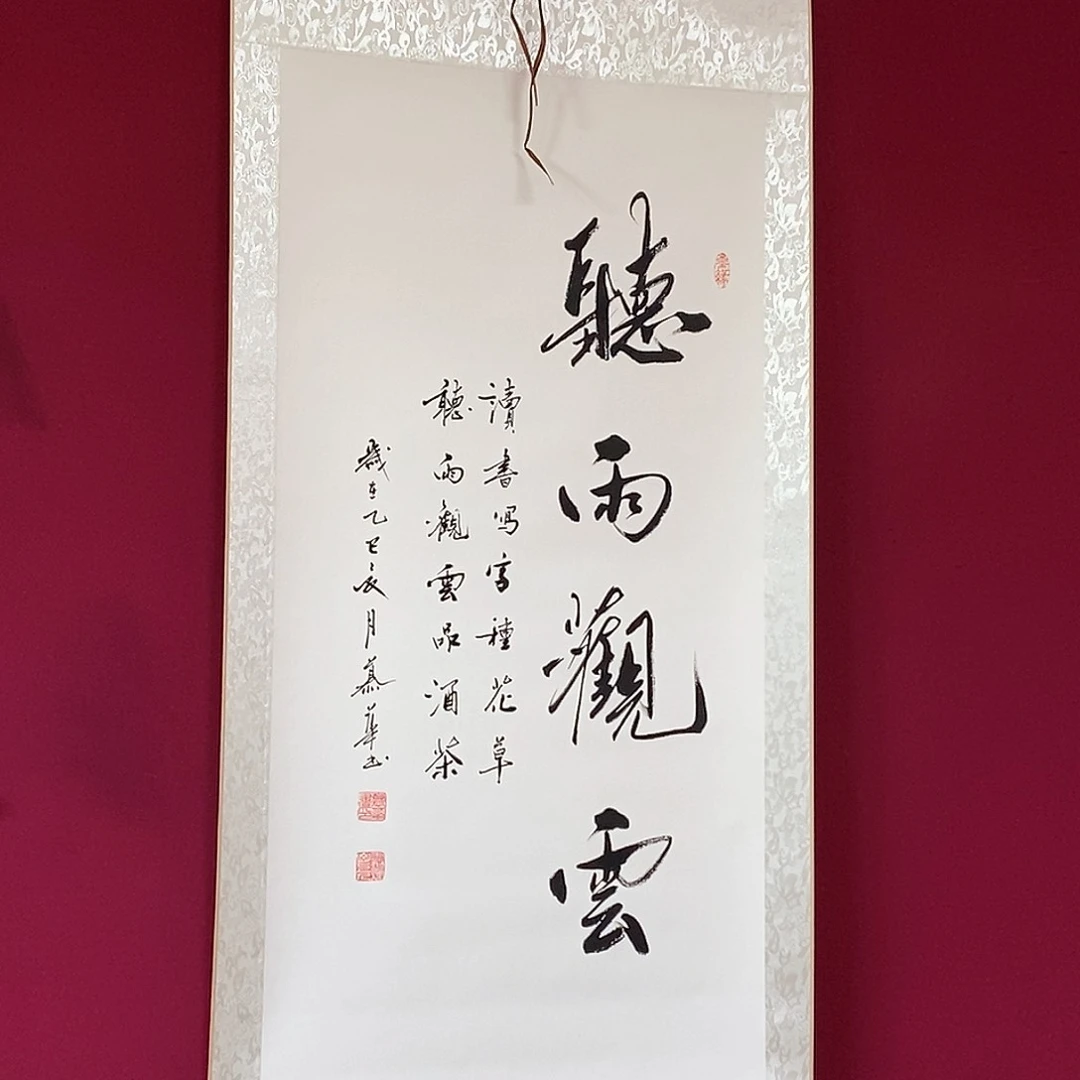 聽雨觀雲
讀書写字種花草
聽雨觀雲品酒茶
歲在乙巳辰月慕華书